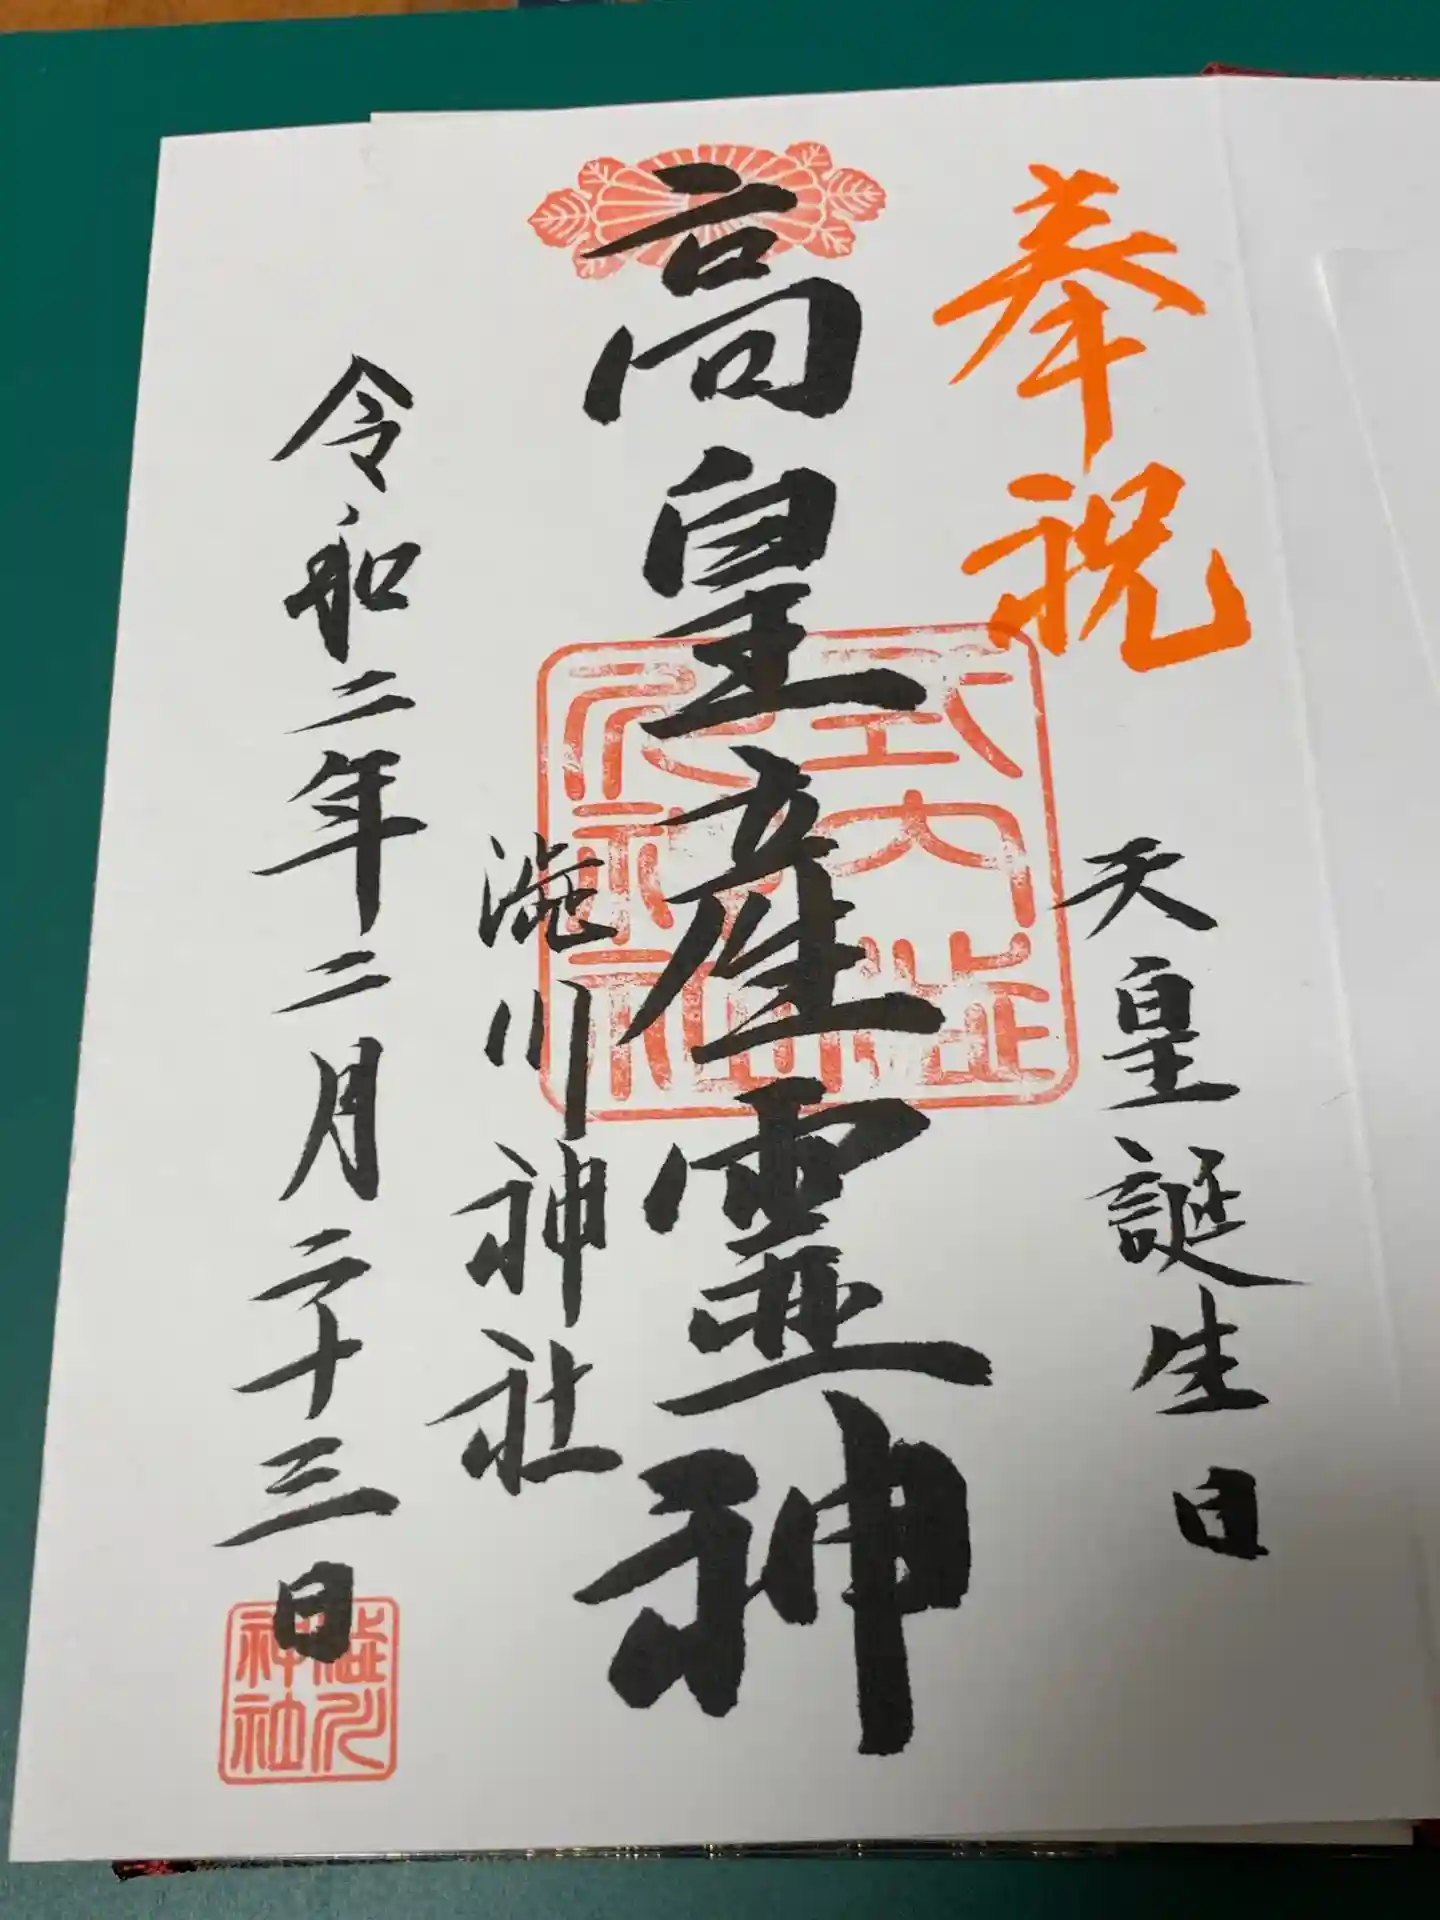 奉祝
天皇誕生日
高皇産霊神
式内澁
川神社
澁川神社
令和二年二月二十三日
澁川
神社